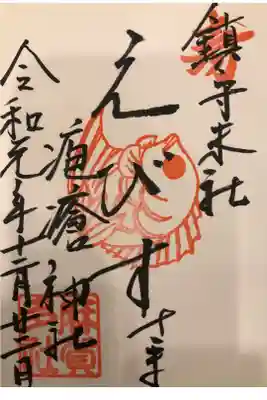 鎮守末社
えびす
疱瘡神社
令和元年十二月廿二日